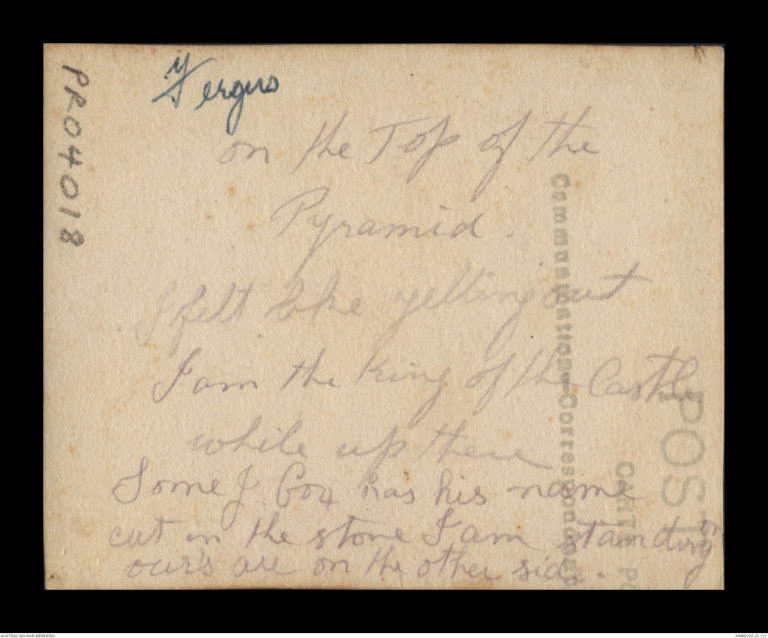 Fergus
on the Top of the
Pyramid
I felt like yelling out
I am the King of the Castle
while up there
Some J. Cox has his name
cut in the stone I am standing on
our's are on the other side.
PR04018
Communication Correspondence
POST
CARTE PO
AUSTRALIAN WAR MEMORIAL